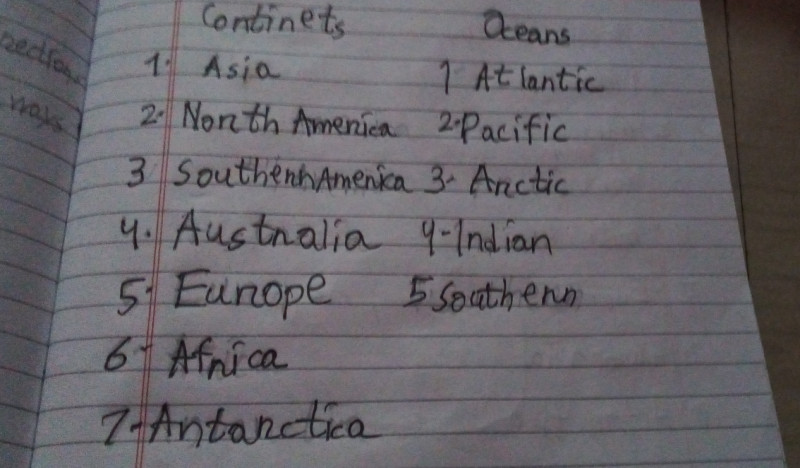 Continets Oceans
1. Asia 1 Atlantic
2. North America 2. Pacific
3 Southern America 3. Arctic
4. Australia 4-Indian
5. Europe 5 Southern
6- Africa
7. Antarctica